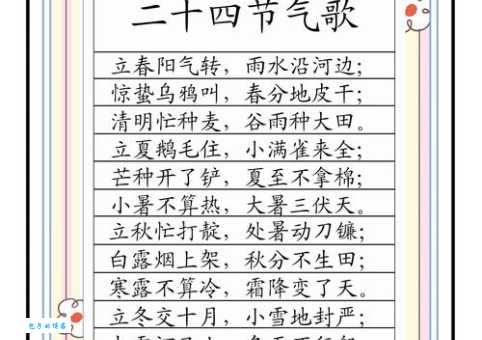 二十四节气歌
立春阳气转，雨水沿河边；
惊蛰乌鸦叫，春分地皮干；
清明忙种麦，谷雨种大田。
立夏鹅毛住，小满雀来全；
芒种开了铲，夏至不拿棉；
小暑不算热，大暑三伏天。
立秋忙打靛，处暑动刀镰；
白露烟上架，秋分不生田；
寒露不算冷，霜降变了天。
立冬交十月，小雪地封严；